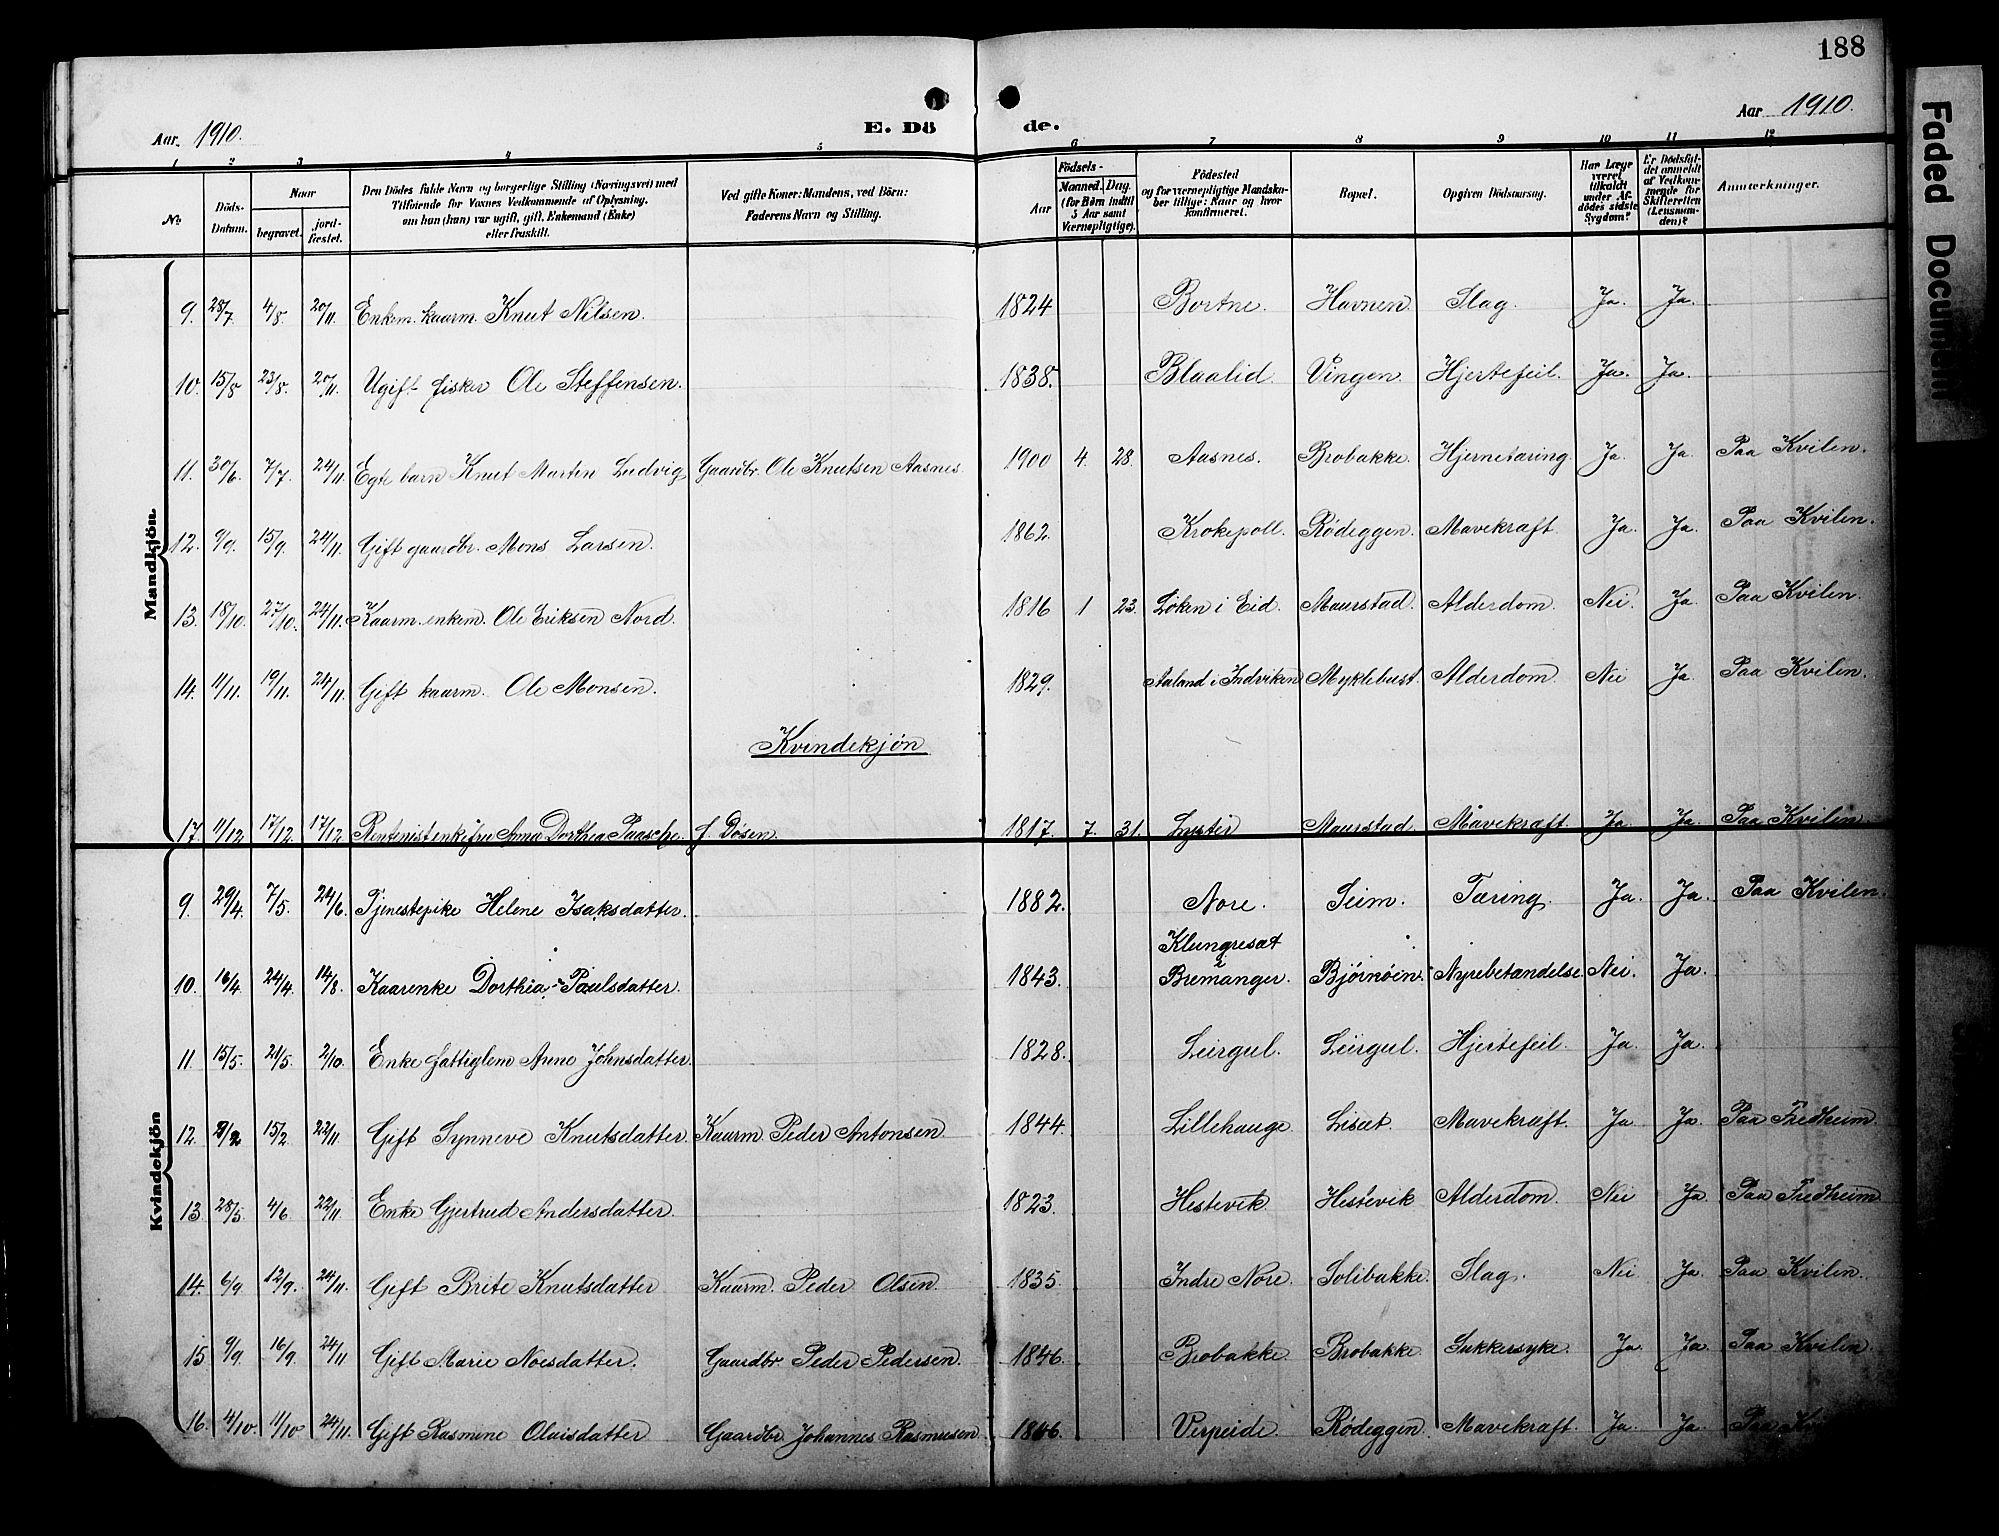 188
Faded Document
Aar 1910.
E. Dö de.
Aar 1910.
1 2 3 4 5 6 7 8 9 10 11 12
No
Döds-Datum.
Naar
begravet.
jord-fæstet.
Den Dödes fulde Navn og borgerlige Stilling (Næringsvei) med
Tilföiende for Voxnes Vedkommende af Oplysning,
om hun (han) var ugift, gift, Enkemand (Enke)
eller fraskilt.
Ved gifte Koner: Mandens, ved Börn:
Faderens Navn og Stilling.
Födsels-
Aar
Maaned. Dag.
(for Börn indtil
5 Aar samt
Værnepligtige).
Födested
og for værnepligtige Mandska-
ber tillige: Naar og hvor
konfirmeret.
Bopæl.
Opgiven Dödsaarsag.
Har Læge
været
tilkaldt
under Af-
dödes sidste
Sygdom?
Er Dödsfal-
det anmeldt
af Vedkom-
mende for
Skifteretten
(Lensman-
den)?
Anmærkninger.
Mandkjön.
9. 28/7. 4/8. 20/11. Enkem. kaarm Knut Nilsen. 1824 Bortne. Havnen. Slag. Ja. Ja.
10. 15/8 23/8. 20/11. Ugift fisker Ole Steffensen. 1838. Blaalid. Vingen. Hjertefeil. Ja. Ja.
11. 30/6. 7/7. 24/11. Egte barn Knut Martin Ludvig Gaardbr. Ole Knutsen Aasnes. 1900 4. 28. Aasnes. Brobakke. Hjernetæring. Ja. Ja. Paa Kvilen.
12. 9/9. 15/9. 24/11. Gift gaardbr. Mons Larsen. 1862. Krokepoll. Rødeggen. Mavekræft. Ja. Ja. Paa Kvilen.
13. 18/10. 27/10. 24/11. Kaarm. enkem. Ole Eriksen Nord. 1816 1 23. Løken i Eid. Maurstad. Alderdom. Nei. Ja. Paa Kvilen.
14. 11/11. 19/11. 24/11. Gift kaarm. Ole Monsen. 1829. Aaland i Indviken Myklebust. Alderdom. Nei Ja. Paa Kvilen.
Kvindekjøn
17. 11/12 17/12. 17/12. Rentenist enkefru Anna Dorthea Paasche, f. Døsen. 1817. 7. 31. Lyster Maurstad. Mavekræft. Ja. Ja. Paa Kvilen.
Kvindekjön
9. 29/4. 7/5. 24/6. Tjenestepike Helene Isaksdatter. 1882. Nore. Seim. Tæring. Ja. Ja. Paa Kvilen.
10. 16/4. 24/4. 14/8. Kaarenke Dorthea Paulsdatter. 1843. Klungresæt i Bremanger. Bjørnøen. Nyrebetændelse Nei. Ja.
11. 15/5. 21/5. 2/10. Enke fattiglem Anne Johnsdatter. 1828. Leirgul. Leirgul. Hjertefeil. Ja. Ja.
12. 8/2 15/2. 22/11. Gift Synneve Knutsdatter Kaarm. Peder Antonsen. 1844. Lillehauge Lisæt. Mavekræft. Ja Ja. Paa Fredheim.
13. 28/5. 4/6 22/11 Enke Gjertrud Andersdatter. 1823. Hestevik Hestevik Alderdom. Nei Ja. Paa Fredheim
14. 6/9 12/9. 24/11. Gift Brite Knutsdatter Kaarm. Peder Olsen. 1835. Indre Nore. Solibakke. Slag. Nei Ja. Paa Kvilen.
15 9/9. 16/9. 24/11 Gift Marie Noesdatter. Gaardbr. Peder Pedersen. 1846. Brobakke. Brobakke Sukkersyke. Ja. Ja. Paa Kvilen.
16. 4/10. 11/10 24/11. Gift Rasmine Oluisdatter Gaardbr. Johannes Rasmusen 1846. Verpeide. Rødeggen. Mavekræft. Ja. Ja. Paa